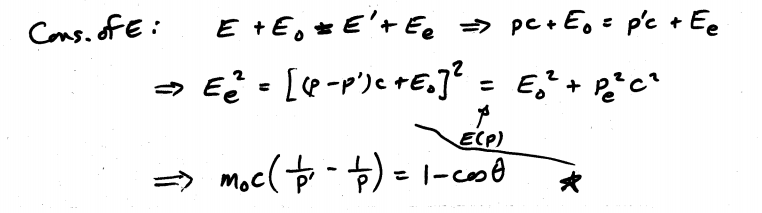 Cons. of E: E + E₀ = E' + Eₑ ⇒ pc + E₀ = p'c + Eₑ
⇒ Eₑ² = [(p - p')c + E₀]² = E₀² + pₑ²c²
E(p)
⇒ m₀c(1/p' - 1/p) = 1 - cosθ ★